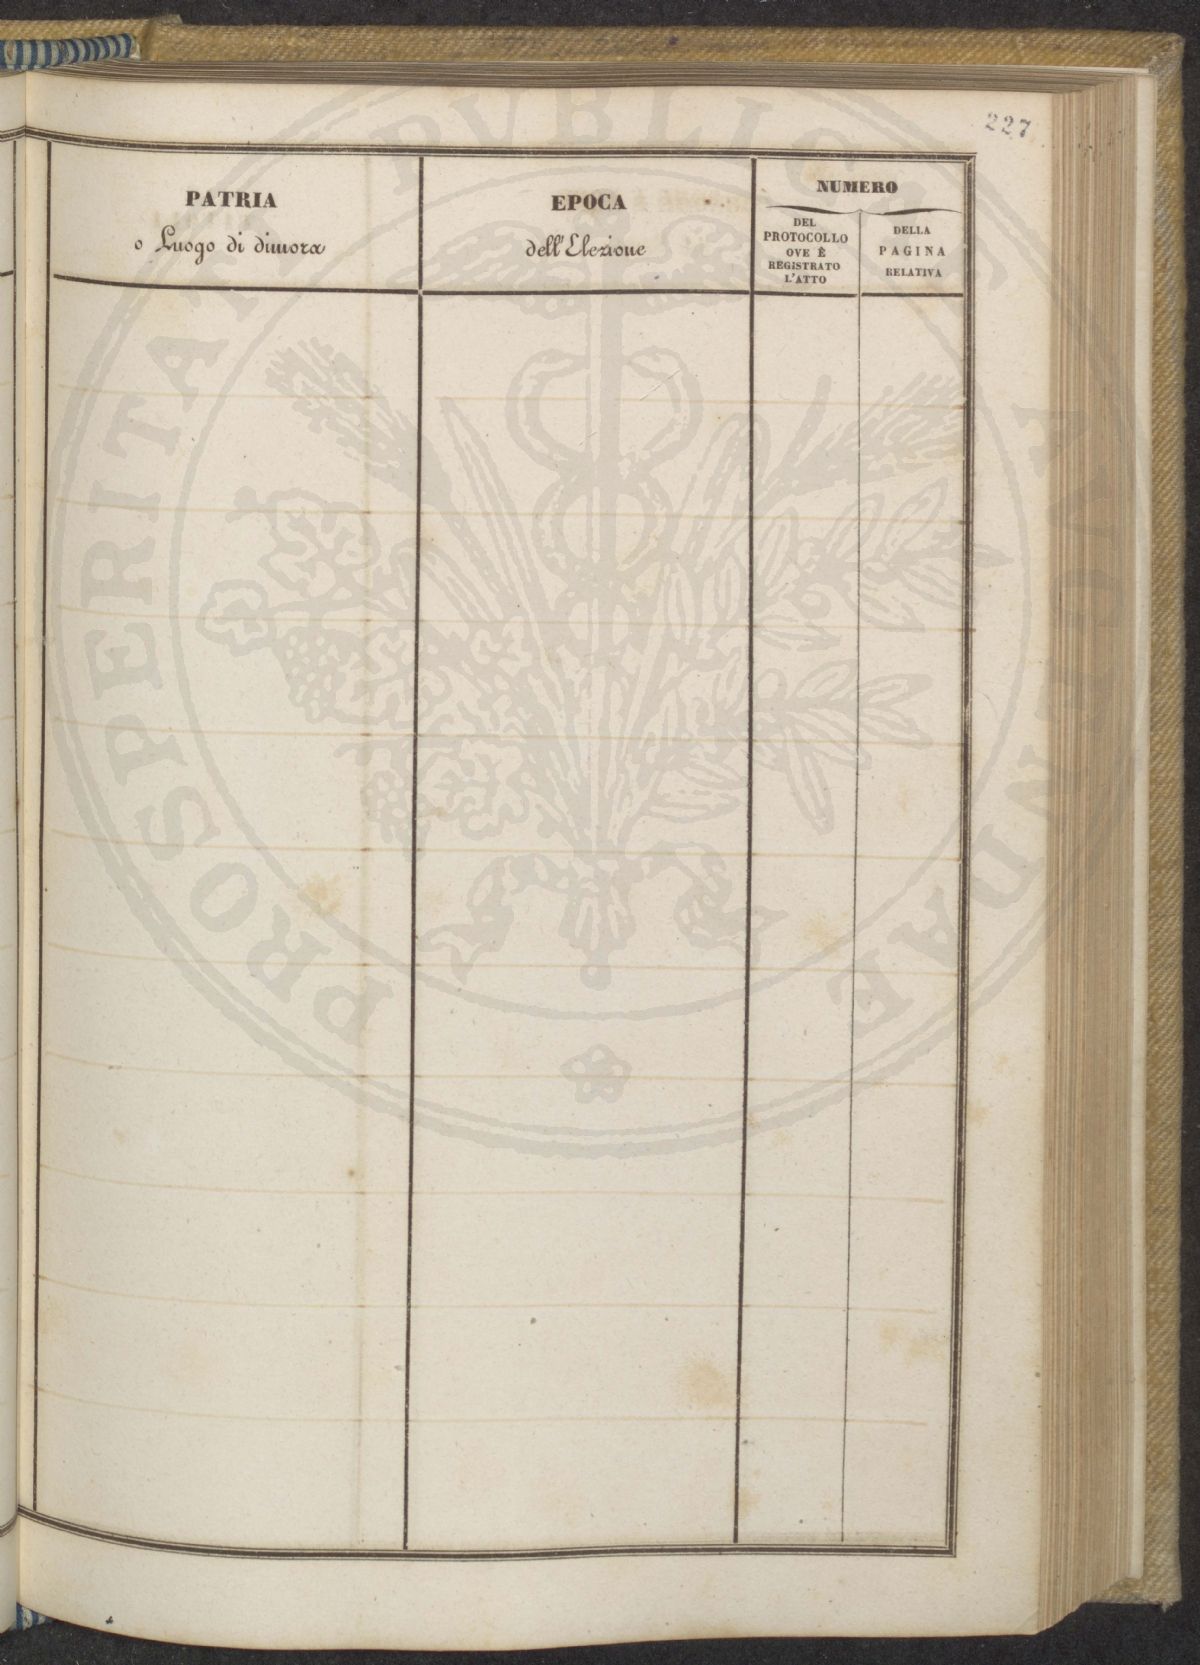 227
PATRIA
o Luogo di dimora
EPOCA
dell'Elezione
NUMERO
DEL
PROTOCOLLO
OVE È
REGISTRATO
L'ATTO
DELLA
PAGINA
RELATIVA
PROSPERITATI PUBLICAE AUGENDAE